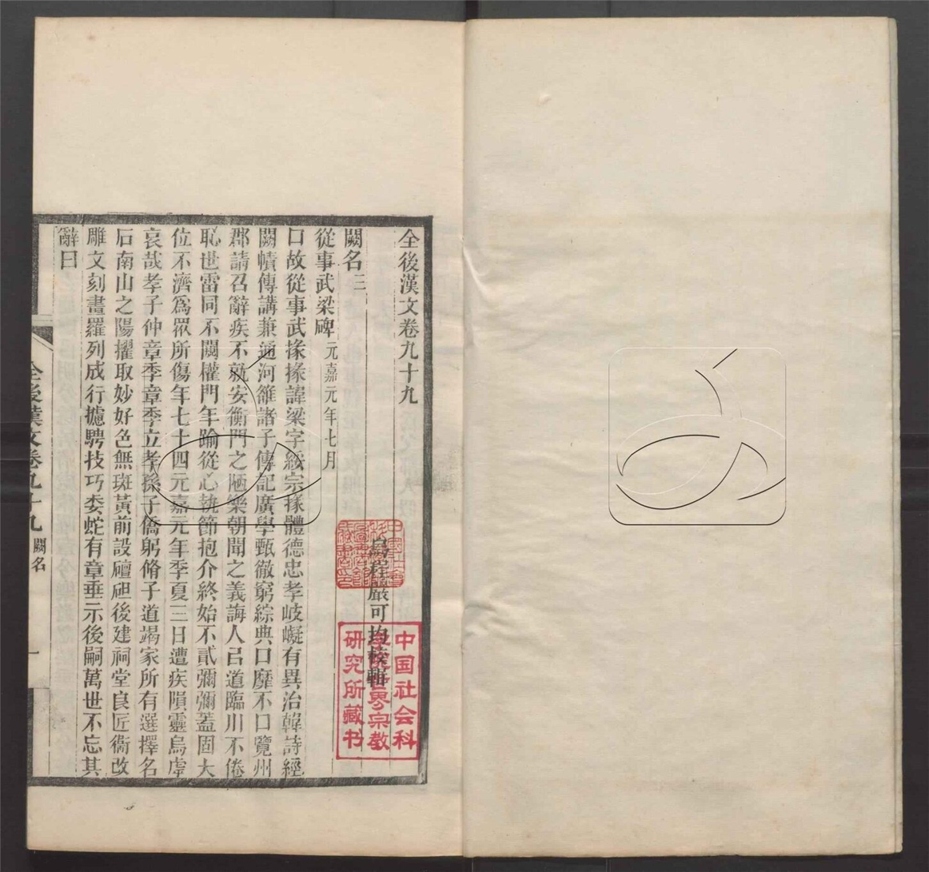 全後漢文卷九十九
烏程嚴可均校輯
闕名三
從事武梁碑 元嘉元年七月
口故從事武掾掾諱梁字綏宗掾體德忠孝岐嶷有異治韓詩經
闕幘傳講兼通河雒諸子傳記廣學甄徹窮綜典口靡不口覽州
郡請召辭疾不就安衡門之陋樂朝聞之義誨人㠯道臨川不倦
恥世雷同不闚權門年踰從心執節抱介終始不貳彌彌蓋固大
位不濟爲眾所傷年七十四元嘉元年季夏三日遭疾隕靈烏虖
哀哉孝子仲章季章季立孝孫子僑躬脩子道竭家所有選擇名
石南山之陽擢取妙好色無斑黃前設壇墠後建祠堂良匠衞改
雕文刻畫羅列成行攄騁技巧委蛇有章垂示後嗣萬世不忘其
辭曰
全後漢文卷九十九 闕名 一
中国社会科
学院世界宗教
研究所藏书